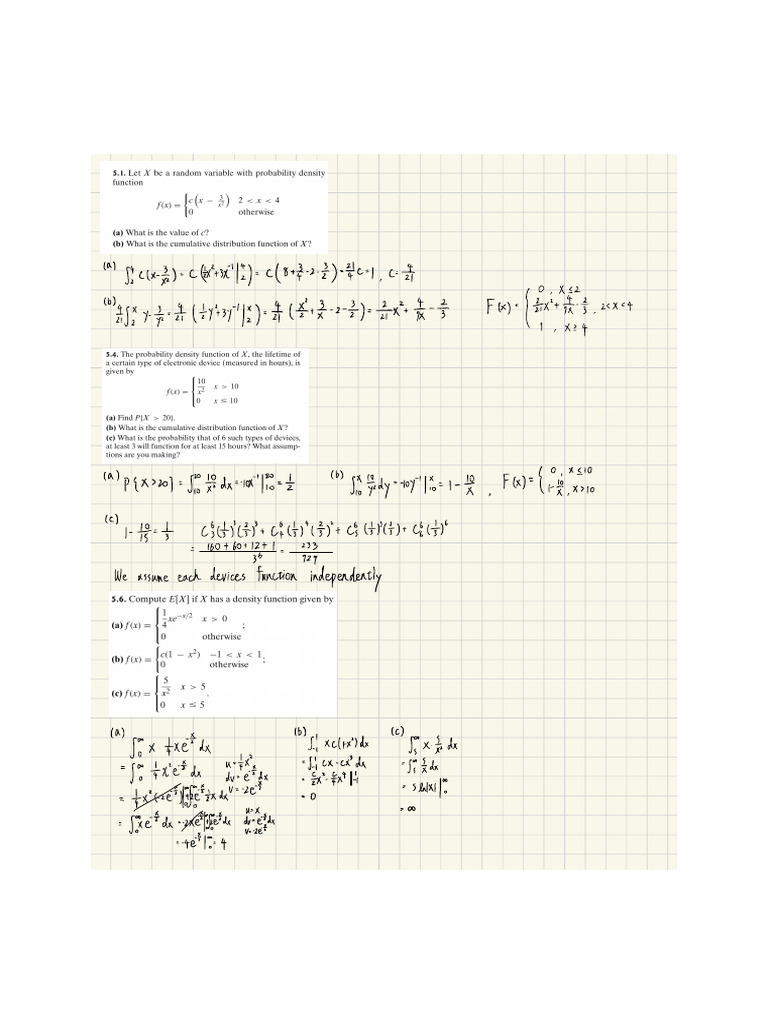 5.1. Let X be a random variable with probability density
function
f(x) = { c(x − 3/x²) 2 < x < 4
0 otherwise
(a) What is the value of c?
(b) What is the cumulative distribution function of X?
(a) ∫₂⁴ c(x-3/x²) = c(½x²+3x⁻¹|₂⁴) = c(8+3/4-2-3/2) = 21/4 c = 1, c = 4/21
(b) 4/21 ∫₂ˣ y-3/y² = 4/21 (½y²+3y⁻¹|₂ˣ) = 4/21 (x²/2+3/x-2-3/2) = 2/21 x² + 4/7x - 2/3
F(x) = { 0, x≤2
2/21 x² + 4/7x - 2/3, 2<x<4
1, x≥4
5.4. The probability density function of X, the lifetime of
a certain type of electronic device (measured in hours), is
given by
f(x) = { 10/x² x > 10
0 x ≤ 10
(a) Find P{X > 20}.
(b) What is the cumulative distribution function of X?
(c) What is the probability that of 6 such types of devices,
at least 3 will function for at least 15 hours? What assump-
tions are you making?
(a) P{X>20} = ∫₁₀²⁰ 10/x² dx = -10x⁻¹|₁₀²⁰ = 1/2
(b) ∫₁₀ˣ 10/y² dy = -10y⁻¹|₁₀ˣ = 1 - 10/x, F(x) = { 0, x≤10
1-10/x, x>10
(c)
1-10/15 = 1/3 C₃⁶(1/3)³(2/3)³ + C₄⁶(1/3)⁴(2/3)² + C₅⁶(1/3)⁵(2/3) + C₆⁶(1/3)⁶
= (160+60+12+1)/3⁶ = 233/729
We assume each devices function independently
5.6. Compute E[X] if X has a density function given by
(a) f(x) = { 1/4 xe^(−x/2) x > 0
0 otherwise ;
(b) f(x) = { c(1 − x²) −1 < x < 1
0 otherwise ;
(c) f(x) = { 5/x² x > 5
0 x ≤ 5 .
(a)
∫₀^∞ x ¼xe^(-x/2) dx
= ∫₀^∞ ¼x²e^(-x/2) dx u=¼x²
dv=e^(-x/2)dx
= ¼x²(-2e^(-x/2))|₀^∞+∫₀^∞2e^(-x/2) ½x dx v=-2e^(-x/2)
= ∫₀^∞ xe^(-x/2) dx = -2xe^(-x/2)|₀^∞+∫₀^∞2e^(-x/2)dx u=x
dv=e^(-x/2)dx
v=-2e^(-x/2)
= -4e^(-x/2)|₀^∞ = 4
(b)
∫₋₁¹ xc(1-x²)dx
= ∫₋₁¹ cx-cx³ dx
= c/2 x²-c/4 x⁴|₋₁¹
= 0
(c)
∫₅^∞ x·5/x² dx
= ∫₅^∞ 5/x dx
= 5 ln|x| |₀^∞
= ∞